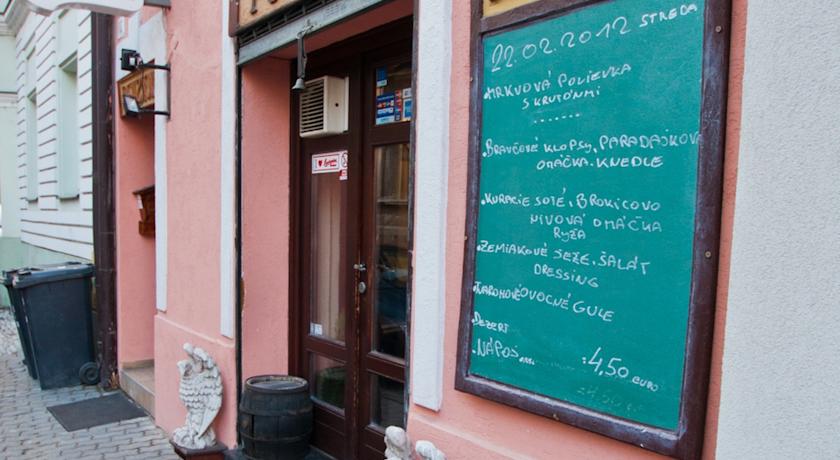 22.02.2012 STREDA
•MRKVOVÁ POLIEVKA
S KRUTÓNMI
.......
•BRAVČOVÉ KLOPSY, PARADAJKOVÁ
OMÁČKA. KNEDLE
•KURACIE SOTÉ, BROKICOVO
NIVOVÁ OMÁČKA
RYŽA
•ZEMIAKOVÉ SEŽE. ŠALÁT
DRESSING
•TVAROHOVÉ OVOCNÉ GULE
•DEZERT
•NÁPOJ ...... :4,50 EURO